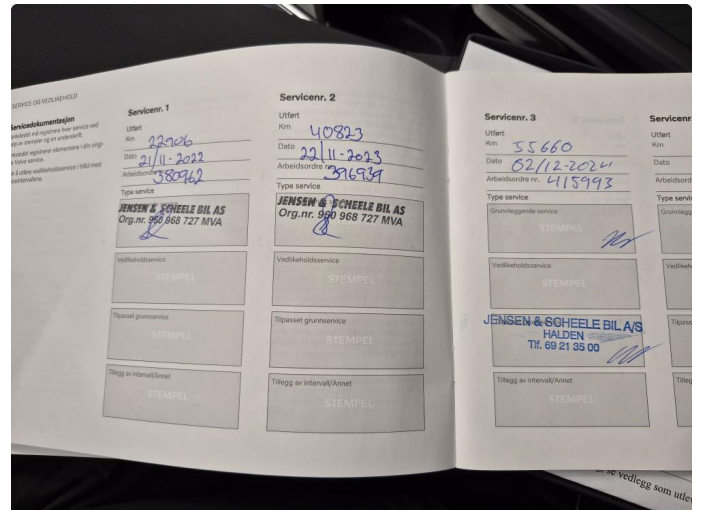 SERVICE OG VEDLIKEHOLD
Servicedokumentasjon
Servicenr. 1
Utført
Km 22906
Dato 21/11-2022
Arbeidsordre nr. 380962
Type service
JENSEN & SCHEELE BIL AS
Org.nr. 960 968 727 MVA
Vedlikeholdsservice
STEMPEL
Tilpasset grunnservice
STEMPEL
Tillegg av intervall/Annet
STEMPEL
Servicenr. 2
Utført
Km 40823
Dato 22/11-2023
Arbeidsordre nr. 396939
Type service
JENSEN & SCHEELE BIL AS
Org.nr. 960 968 727 MVA
Vedlikeholdsservice
STEMPEL
Tilpasset grunnservice
STEMPEL
Tillegg av intervall/Annet
STEMPEL
Servicenr. 3
Utført
Km 55660
Dato 02/12-2024
Arbeidsordre nr. 415993
Type service
Grunnleggende service
Vedlikeholdsservice
STEMPEL
JENSEN & SCHEELE BIL A/S
HALDEN
Tlf. 69 21 35 00
Tillegg av intervall/Annet
STEMPEL
Servicenr
Utført
Km
Dato
Type servi
se vedlegg som utlev